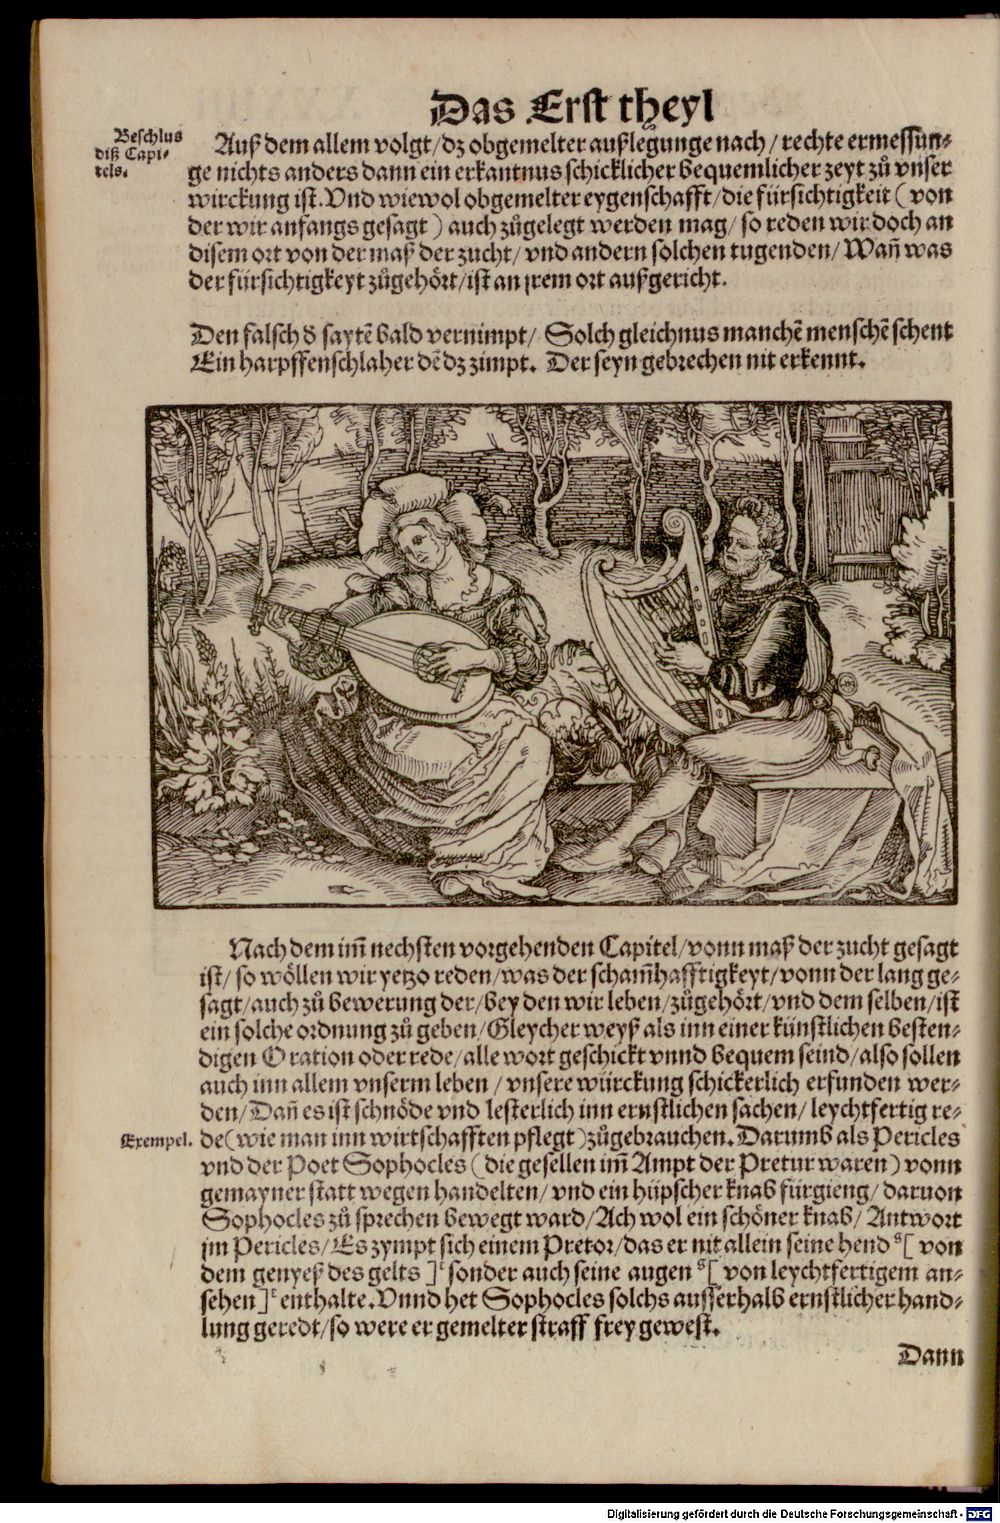 Das Erst theyl
Beschlus
diß Capi-
tels.
Auß dem allem volgt/dz obgemelter außlegunge nach/rechte ermessun-
ge nichts anders dann ein erkantnus schicklicher bequemlicher zeyt zů vnser
wirckung ist. Vnd wiewol obgemelter eygenschafft/die fürsichtigkeit (von
der wir anfangs gesagt) auch zůgelegt werden mag/ so reden wir doch an
disem ort von der maß der zucht/ vnd andern solchen tugenden/ Wañ was
der fürsichtigkeyt zůgehört/ist an jrem ort außgericht.
Den falsch d̄ saytē bald vernimpt/ Solch gleichnus manchē menschē schent
Ein harpffenschlaher dē dz zimpt. Der seyn gebrechen nit erkennt.
Nach dem im̄ nechsten vorgehenden Capitel/vonn maß der zucht gesagt
ist/ so wöllen wir yetzo reden/was der scham̄hafftigkeyt/vonn der lang ge-
sagt/auch zů bewerung der/bey den wir leben/zůgehört/vnd dem selben/ist
ein solche ordnung zů geben/Gleycher weyß als inn einer künstlichen besten-
digen Oration oder rede/alle wort geschickt vnnd bequem seind/also sollen
auch inn allem vnserm leben/ vnsere würckung schickerlich erfunden wer-
den/ Dañ es ist schnöde vnd lesterlich inn ernstlichen sachen/ leychtfertig re-
Exempel.
de(wie man inn wirtschafften pflegt)zůgebrauchen. Darumb als Pericles
vnd der Poet Sophocles (die gesellen im̄ Ampt der Pretur waren) vonn
gemayner statt wegen handelten/ vnd ein hüpscher knab fürgieng/ daruon
Sophocles zů sprechen bewegt ward/Ach wol ein schöner knab/ Antwort
jm Pericles/ Es zympt sich einem Pretor/das er nit allein seine hend ˢ[ von
dem genyeß des gelts ]ᵗ sonder auch seine augen ˢ[ von leychtfertigem an-
sehen ]ᵗ enthalte. Vnnd het Sophocles solchs ausserhalb ernstlicher hand-
lung geredt/so were er gemelter straff frey gewest.
Dann
Digitalisierung gefördert durch die Deutsche Forschungsgemeinschaft - DFG